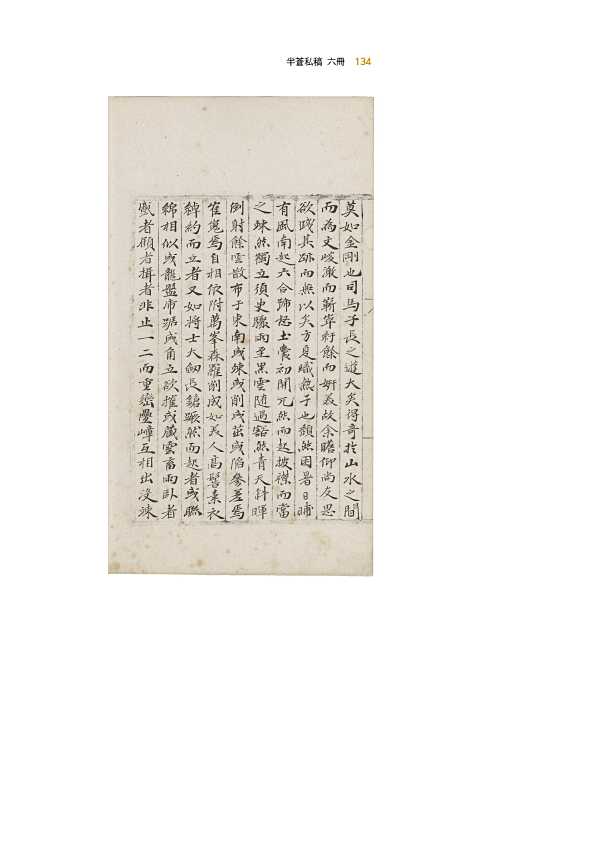 半蒼私稿 六冊 134
莫如金剛也司馬子長之遊大矣得奇於山水之間
而為文峻潔而嶄崒紆餘而姸美故余瞻仰尚友思
欲踐其跡而無以矣方夏熾然子也頹然困暑日晡
有風南起六合號怒土囊初開兀然而起披襟而當
之竦然獨立須臾驟雨至黑雲随過豁然青天斜暉
倒射餘雲散布于東南或竦或削或茁或陷參差焉
崔嵬焉自相依附萬峯森羅削成如美人高髻素衣
綽約而立者又如將士大劒長鎗蹶然而起者或聯
綿相似或龍盤虎踞或角立欲摧或藏雲畜雨臥者
戱者顧者揖者非止一二而重巒疊嶂互相出沒竦